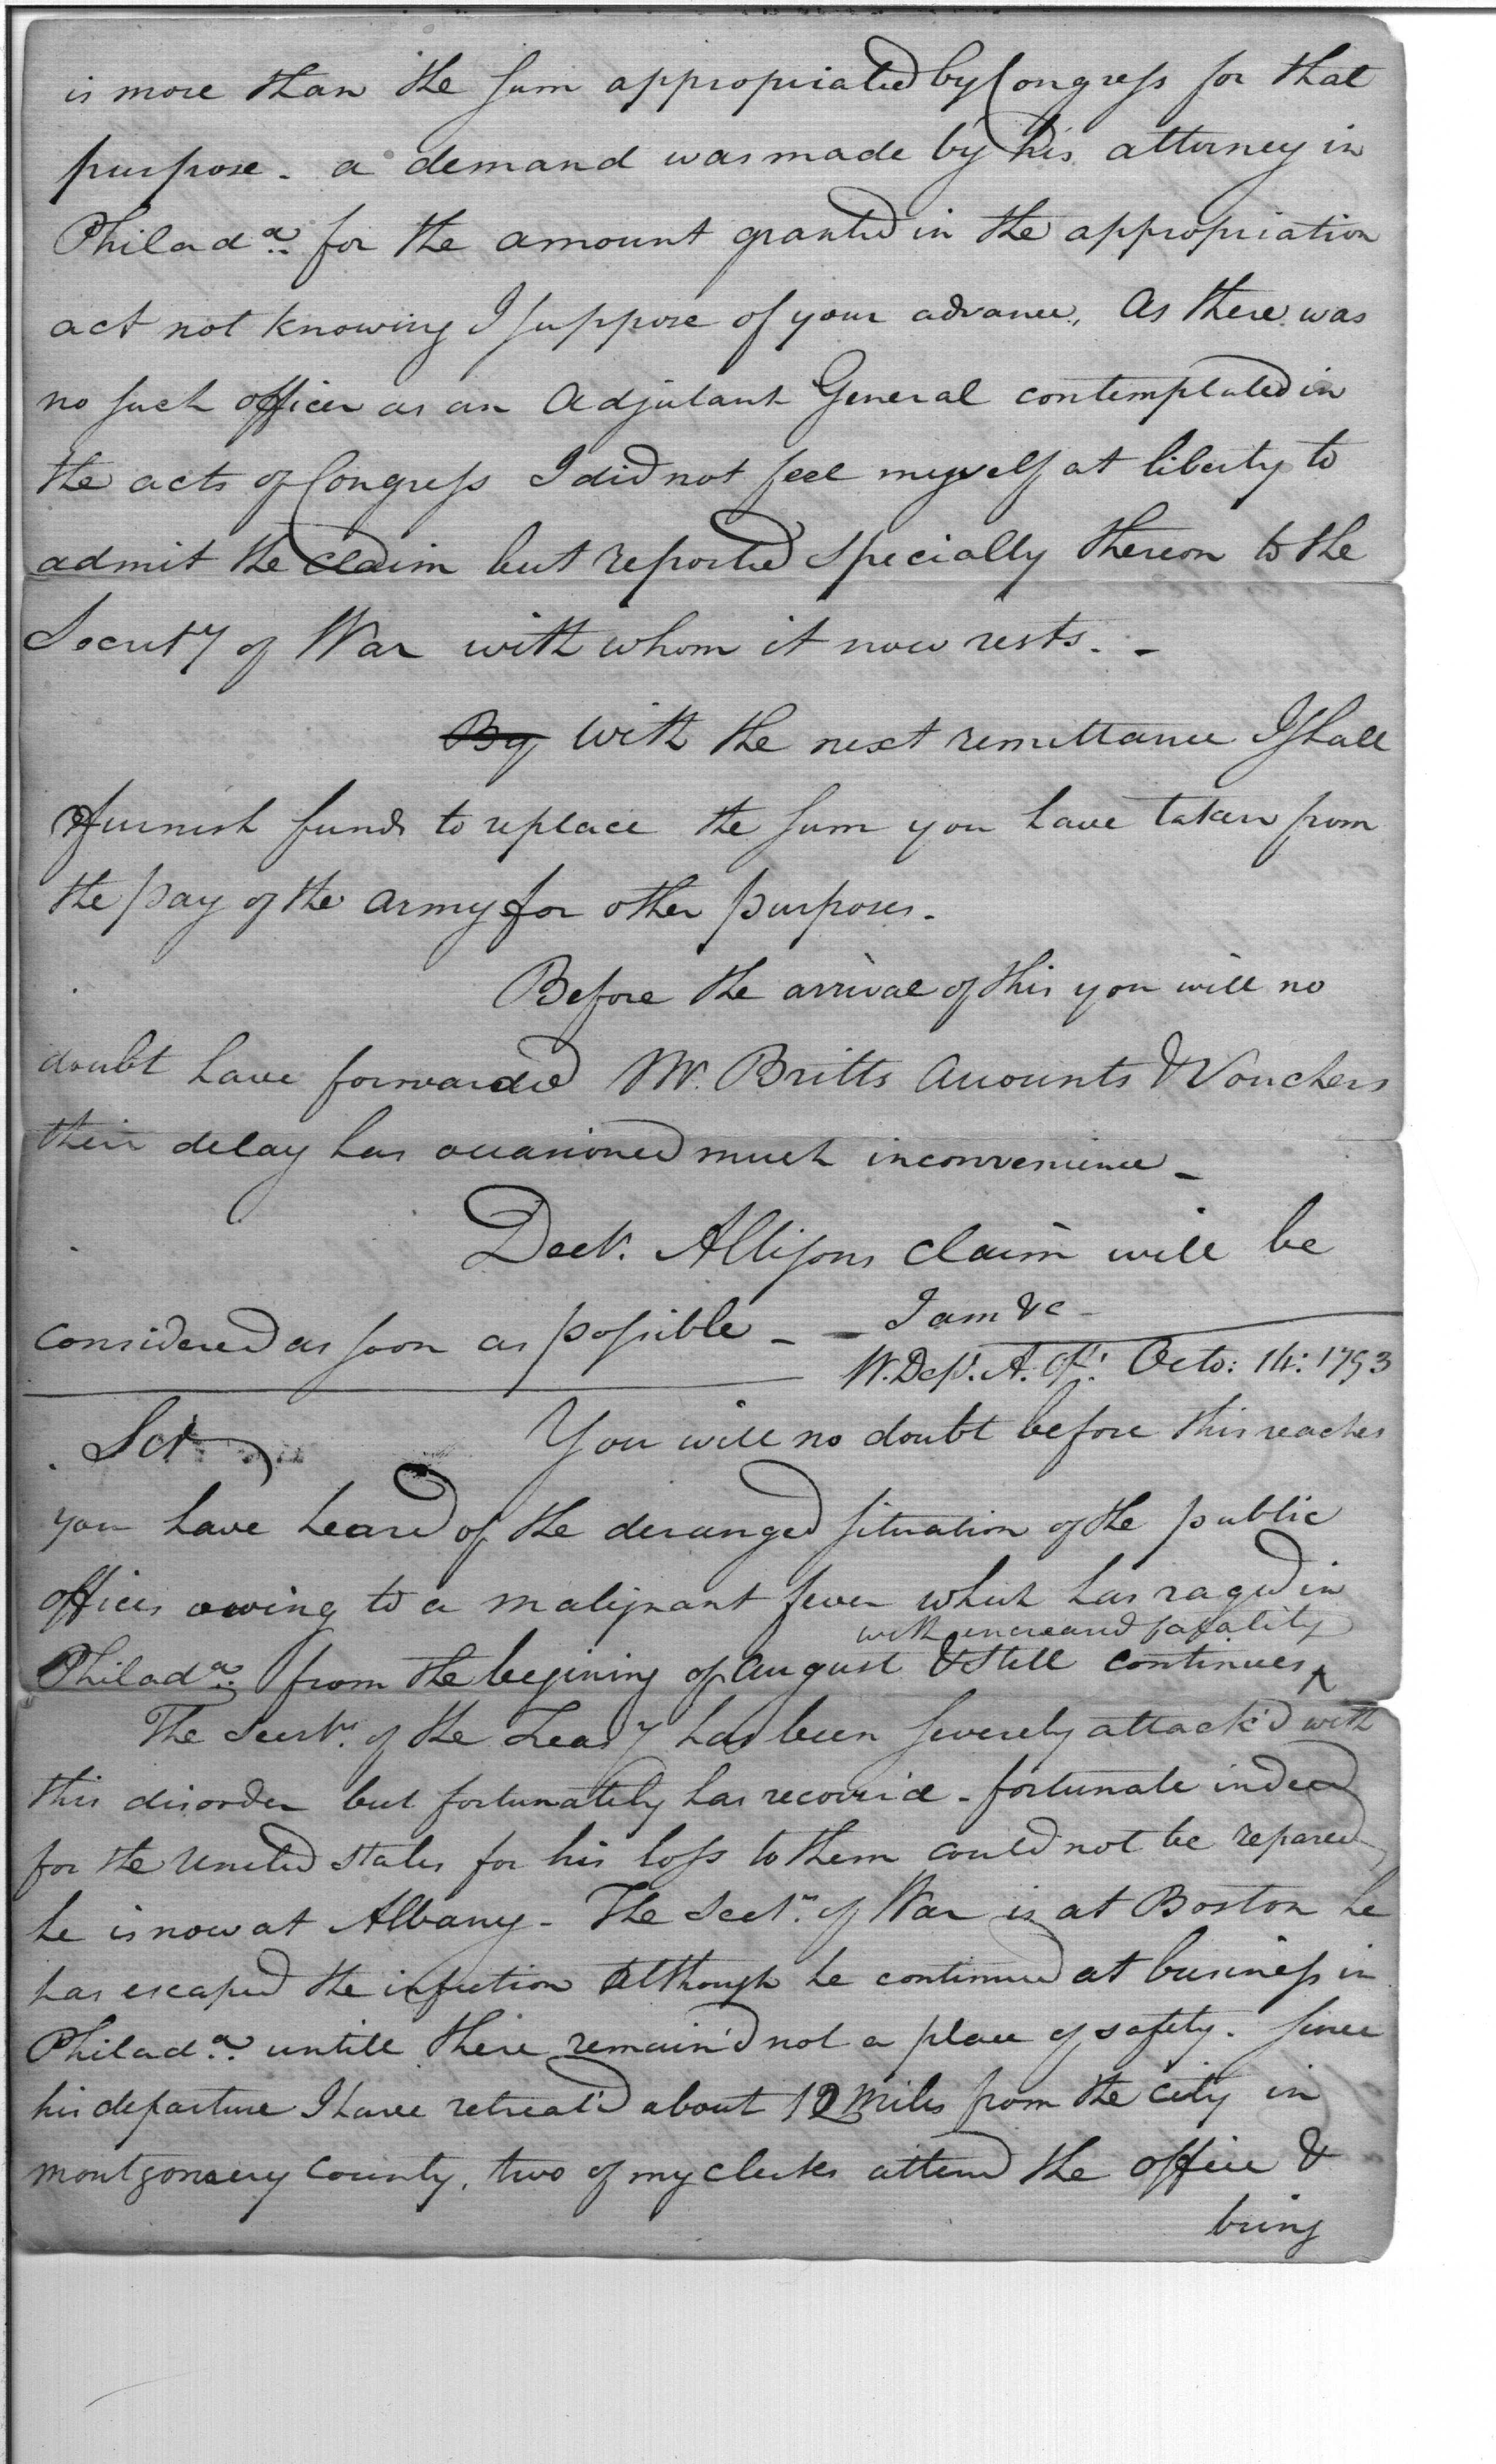 is more than the sum appropriated by Congress for that
purpose. a demand was made by his attorney in
Philada. for the amount granted in the appropriation
act not knowing I suppose of your advance, As there was
no such officer as an Adjutant General contemplated in
the acts of Congress I did not feel myself at liberty to
admit the claim but reported specially thereon to the
Secrety of War with whom it now rests. -
By With the next remittance I shall
furnish funds to replace the sum you have taken from
the pay of the army for other purposes.
Before the arrival of this you will no
doubt have forwarded Mr. Britts Accounts & Vouchers
their delay has occasioned much inconvenience -
Doctr. Allisons claim will be
considered as soon as possible - - I am &c -
W. Dept. A. Off. Octo: 14: 1793
Sir
You will no doubt before this reaches
you have heard of the deranged situation of the public
offices owing to a malignant fever which has raged in
with increased fatality
Philada. from the begining of August & still continues ^
The Sectr. of the Treasy has been severely attack'd with
this disorder but fortunately has recover'd - fortunate indeed
for the United States for his loss to them could not be repared
he is now at Albany - The Sectr. of War is at Boston he
has escaped the infection Although he continued at business in
Philada. untill there remain'd not a place of safety. Since
his departure I have retreat'd about 12 Miles from the City in
montgomery County, two of my clerks attend the office &
bring